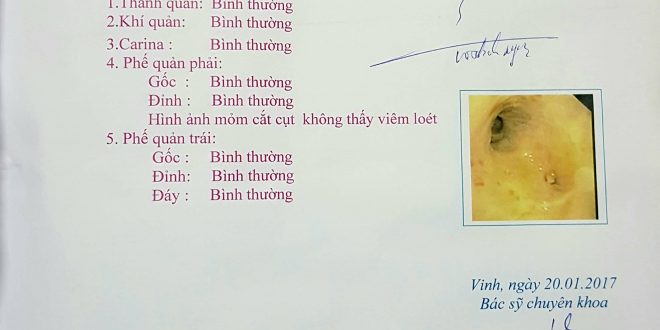 1.Thanh quản: Bình thường
2.Khí quản: Bình thường
3.Carina : Bình thường
4. Phế quản phải:
Gốc : Bình thường
Đỉnh : Bình thường
Hình ảnh mỏm cắt cụt không thấy viêm loét
5. Phế quản trái:
Gốc : Bình thường
Đỉnh: Bình thường
Đáy : Bình thường
Vinh, ngày 20.01.2017
Bác sỹ chuyên khoa